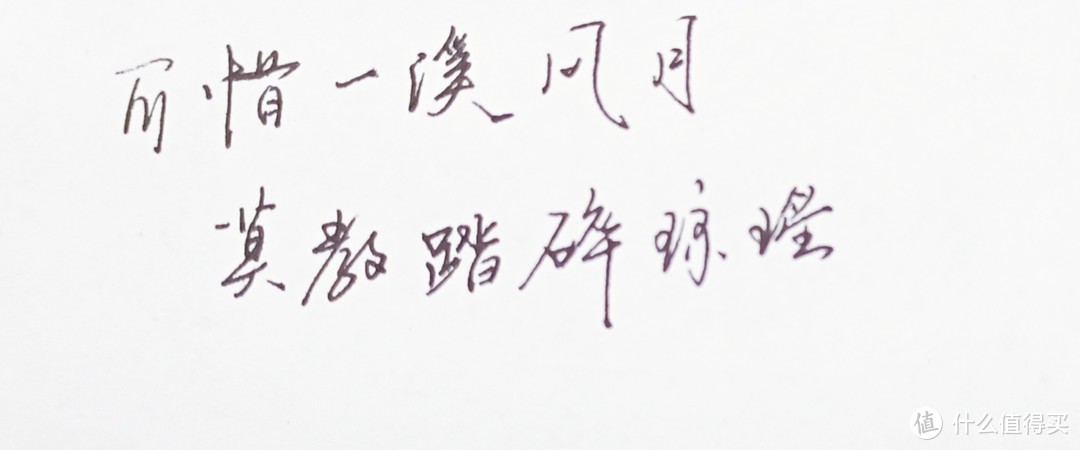 可惜一溪风月
莫教踏碎琼瑶
值 什么值得买